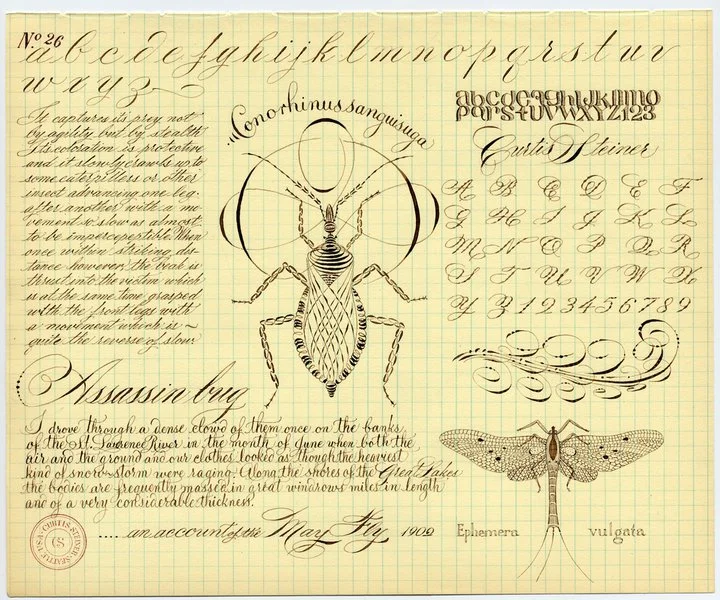 Nº 26
a b c d e f g h i j k l m n o p q r s t u v
w x y z
It captures its prey not
by agility but by stealth
Its coloration is protective
and it slowly crawls up to
some caterpillers or other
insect advancing one leg
after another with a mo-
vement so slow as almost
to be imperceptible. When
once within striking dis-
tance however, the beak is
thrust into the victim which
is at the same time grasped
with the front legs with
a movement which is ~
quite the reverse of slow.
Conorhinus sanguisuga
abcdefghijklmno
pqrstuvwxyz123
Curtis Steiner
A B C D E F
G H I J K L
M N O P Q R
S T U V W X
Y Z 1 2 3 4 5 6 7 8 9
Assassin bug
I drove through a dense clowd of them once on the banks
of the St. Lawrence River in the month of June when both the
air and the ground and our clothes looked as though the heaviest
kind of snow-storm were raging. Along the shores of the Great Lakes
the bodies are frequently massed in great windrows miles in length
and of a very considerable thickness.
.... an account of the May Fly 1902
Ephemera vulgata
CURTIS STEINER SEATTLE USA
CS